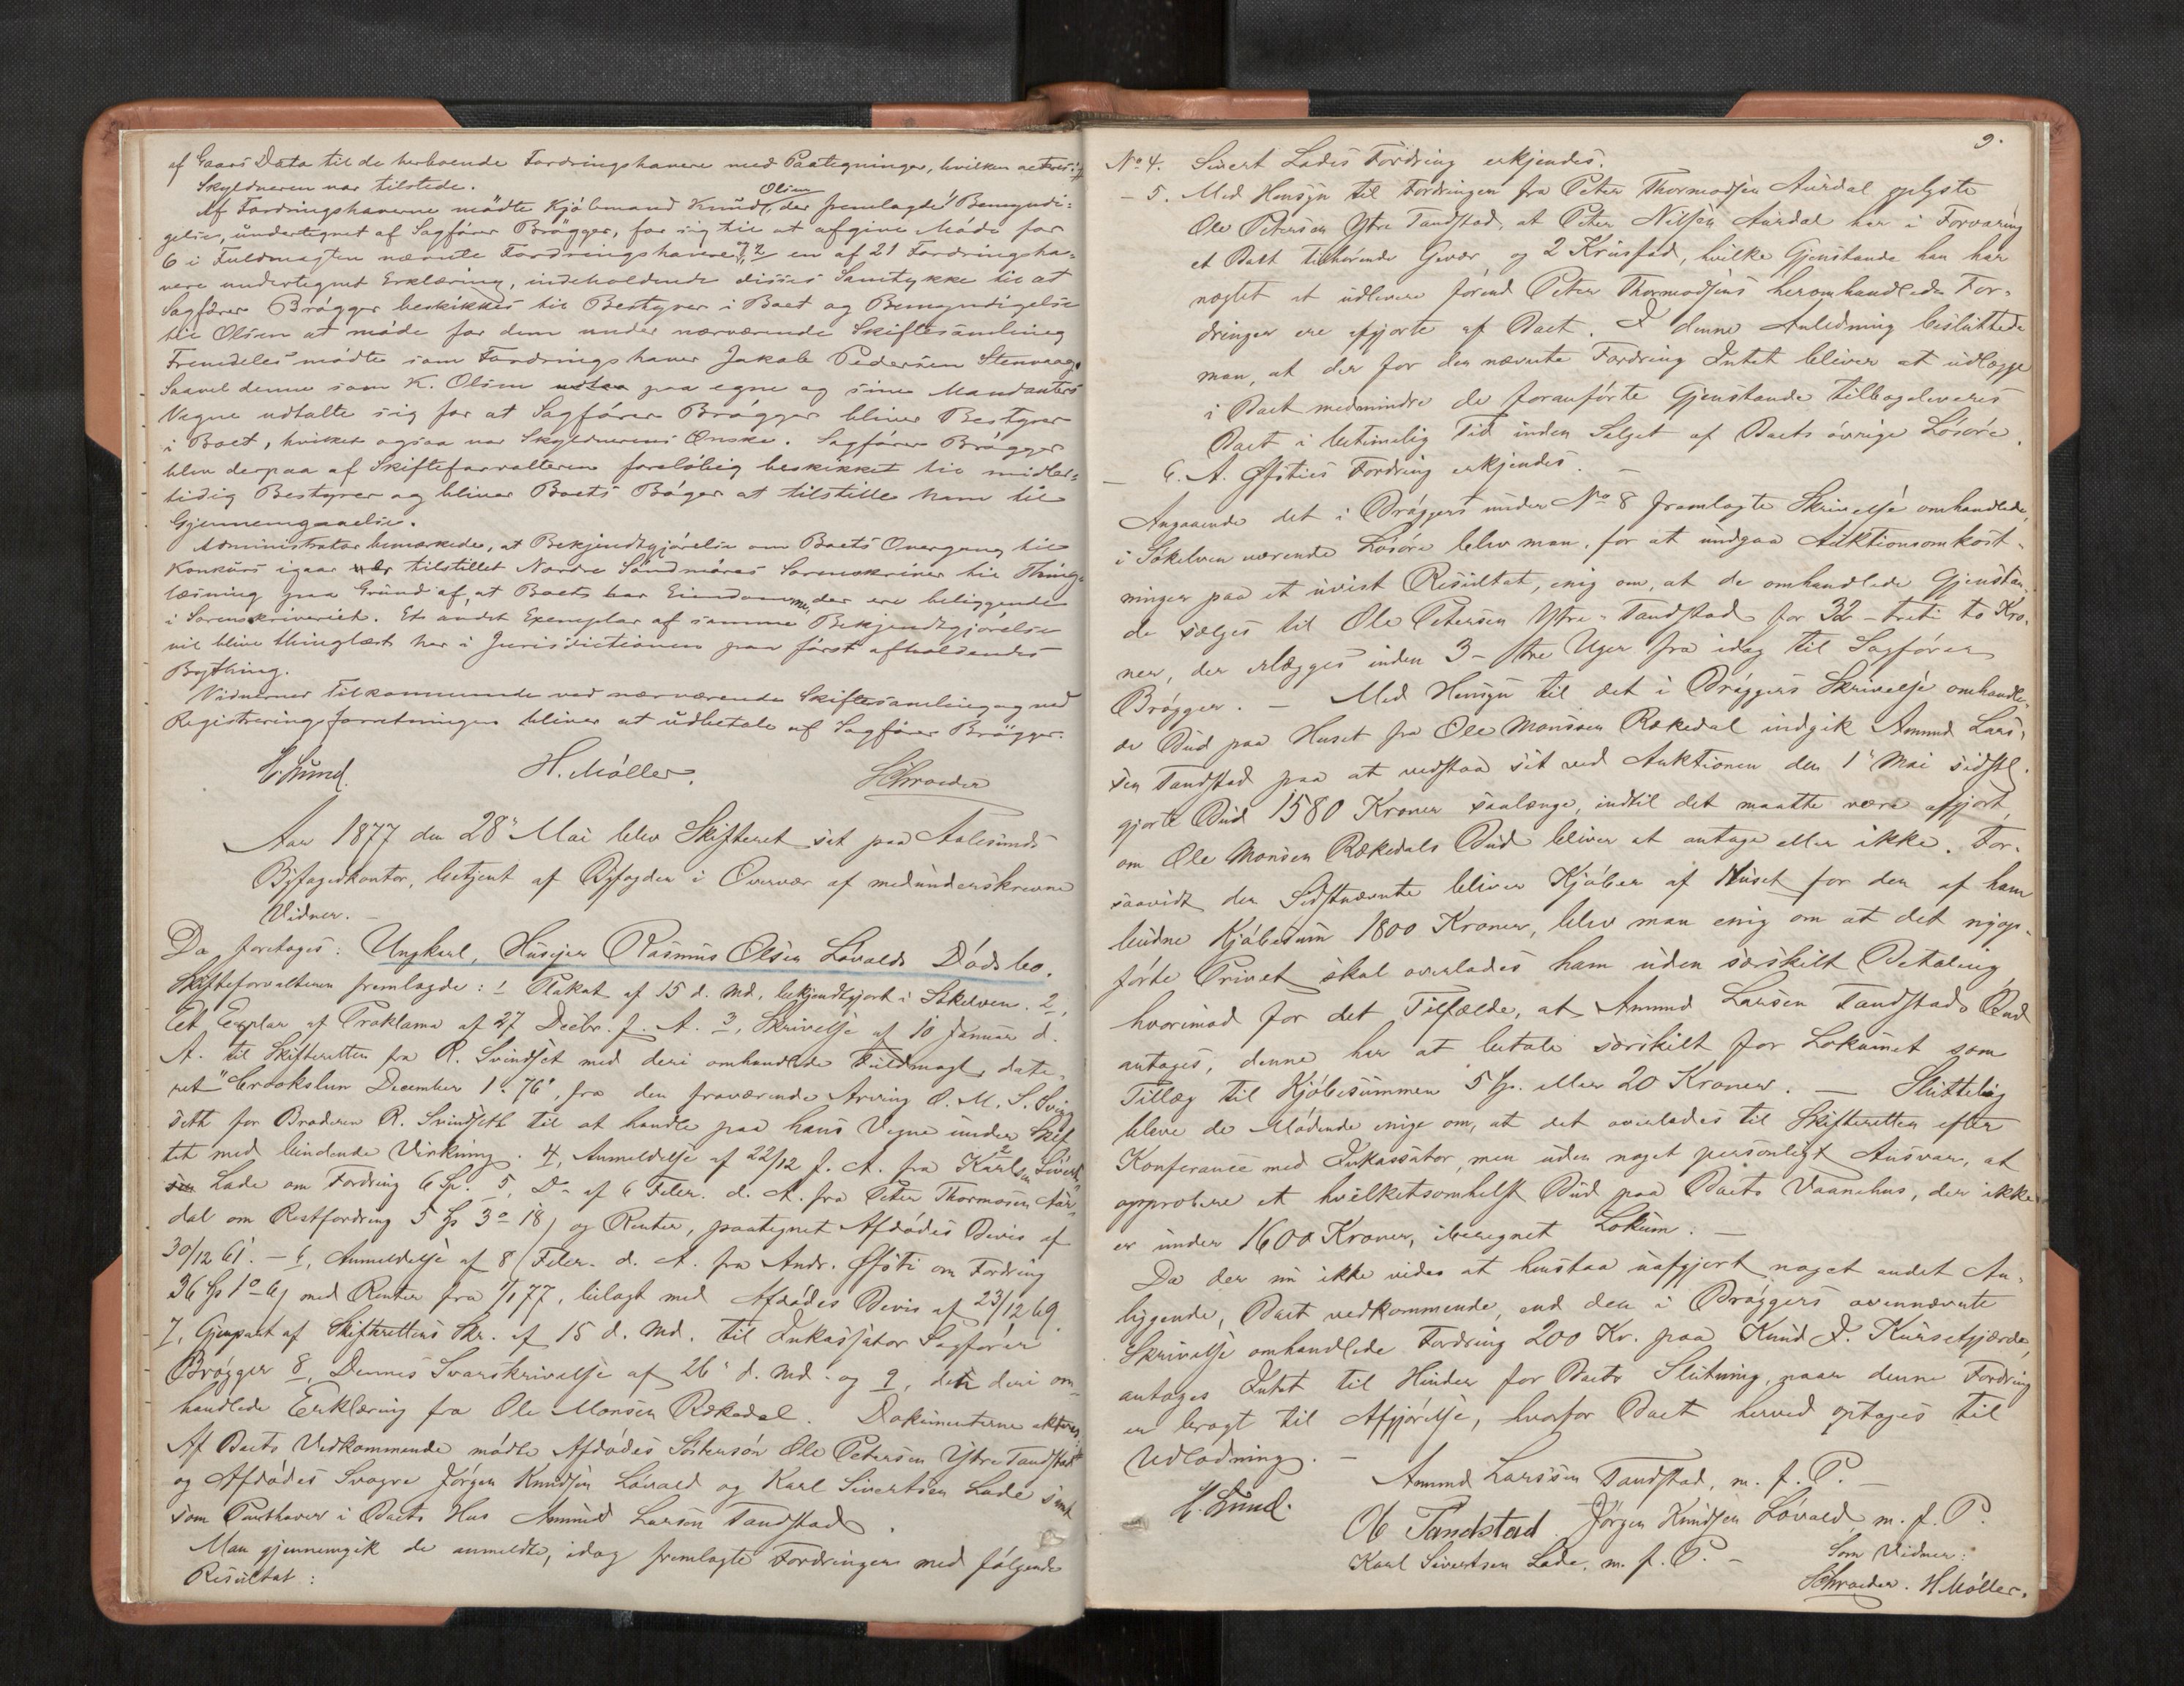 af Gaars Data til de herboende Fordringshavere med Paategninger, hvilken acteres.
Skyldneren var tilstede.
Af Fordringshaverne mödte Kjöbmand Knud Olsen, der fremlagde 1 Bemyndi-
gelse, undertegnet af Sagförer Brögger, for sig til at afgive Möde for
6 i Fuldmagten nævnte Fordringshavere, 2 en af 21 Fordringsha-
vere undertegnet Erklæring, indeholdende disses Samtykke til at
Sagförer Brögger beskikkes til Bestyrer i Boet og Bemyndigelse
til Olsen at möde for dem under nærværende Skiftesamling
Fremdeles mödte som Fordringshaver Jakob Pedersen Stenvaag.
Saavel denne som K. Olsen paa egne og sine Mandanters
Vegne udtalte sig for at Sagförer Brögger bliver Bestyrer
i Boet, hvilket ogsaa var Skyldnerens Önske. Sagförer Brögger
blev derpaa af Skifteforvalteren foreløbig beskikket til midler-
tidig Bestyrer og bliver Boets Böger at tilstille ham til
Gjennemgaaelse.
Administrator bemærkede, at Bekjendtgjörelse om Boets Overgang til
Konkurs igaar er tilstillet Nordre Söndmöres Sorenskriver til Thing-
læsning paa Grund af, at Boets har Eiendomme, der ere beliggende
i Sorenskriveriet. Et andet Exemplar af samme Bekjendtgjörelse
vil blive thinglæst her i Jurisdictionen paa först afholdendes
Bything.
Vidnerne Tilkommende ved nærværende Skiftesamling og ved
Registreringsforretningen bliver at udbetale af Sagförer Brögger.
E. Lund. H. Möller. Schroeder
Aar 1877 den 28de Mai blev Skifteret sat paa Aalesunds
Byfogedkontor, betjent af Byfogden i Overvær af medunderskrevne
Vidner. -
Da foretages: Ungkarl, Huseier Rasmus Olsen Lövolds Dödsbo.
Skifteforvalteren fremlagde: 1 Plakat af 15 d. Md. bekjendtgjort i Sökelven. 2,
Et Explar af Proklama af 27 Decbr. f. A. 3, Skrivelse af 10 Januar d.
A. til Skifteretten fra R. Svindset med deri omhandlede Fuldmagt, date-
ret "Crookston December 1. 76", fra den fraværende Arving O. M. S. Svind-
seth for Broderen R. Svindseth til at handle paa hans Vegne under Skif-
tet med bindende Virkning. 4, Anmeldelse af 22/12 f. A. fra Karl Sivert-
sen Lade om Fordring 6 Sp. 5, Do af 6 Febr. d. A. fra Peter Thormosen Aar-
dal om Restfordring 5 Sp 3 o 18 og Renter, paategnet Afdödes Bevis af
30/12 61. - 6, Anmeldelse af 8 Febr. d. A. fra Andr. Ofsti om Fordring
36 Sp 1 o 6 med Renter fra 1/1 77, bilagt med Afdödes Bevis af 23/12 69.
7, Gjenpart af Skifterettens Skr. af 15 d. Md. til Inkassator Sagförer
Brögger 8, Dennes Svarskrivelse af 26 d. Md. og 9, den deri om-
handlede Erklæring fra Ole Monsen Rekedal. Dokumenterne akteres.
Af Boets Vedkommende mödte Afdödes Söstersön Ole Petersen Ytre Tandstad
og Afdödes Svogre Jörgen Knudsen Lövold og Karl Sivertsen Lade samt
som Parthaver i Boets Hus Amund Larsen Tandstad.
Man gjennemgik de anmeldte, idag fremlagte Fordringer med fölgende
Resultat:
9.
No 4. Sivert Lades Fordring erkjendes.
- 5. Med Hensyn til Fordringen fra Peter Thormodsen Aurdal oplyste
Ole Petersen Ytre Tandstad, at Peter Nilsen Aardal har i Forvaring
et Boet tilhörende Gevær og 2 Krusfad, hvilke Gjenstande han har
nægtet at udlevere förend Peter Thormodsens heromhandlede For-
dringer ere afgjorte af Boet. I denne Anledning besluttede
man, at der for den nævnte Fordring Intet bliver at udlægge
i Boet medmindre de foranförte Gjenstande tilbageleveres
Boet i betimelig Tid inden Salget af Boets övrige Lösöre.
- 6. A. Ofsties Fordring erkjendes. -
Angaaende det i Bröggers under No 8 fremlagte Skrivelse omhandlede,
i Sökelven værende Lösöre blev man, for at undgaa Auktionsomkost-
ninger paa et uvist Resultat, enig om, at de omhandlede Gjenstan-
de sælges til Ole Petersen Ytre-Tandstad for 32 - treti to Kro-
ner, der erlægges inden 3 - tre Uger fra idag til Sagförer
Brögger. - Med Hensyn til det i Bröggers Skrivelse omhandle-
de Bud paa Huset fra Ole Monsen Rekedal indgik Amund Lars-
sen Tandstad paa at vedstaa sit ved Auktionen den 1ste Mai sidstl.
gjorte Bud 1580 Kroner saalænge, indtil det maatte være afgjort,
om Ole Monsen Rekedals Bud bliver at antage eller ikke. For-
saavidt den Sidstnævnte bliver Kjöber af Huset for den af ham
budne Kjöbesum 1800 Kroner, blev man enig om at det nyop-
förte Privet skal overlades ham uden særskilt Betaling
hvorimod for det Tilfælde, at Amund Larsen Tandstads Bud
antages, denne har at betale særskilt for Lokumet som
Tillæg til Kjöbesummen 5 Sp. eller 20 Kroner. - Sluttelig
bleve de Mödende enige om, at det overlades til Skifteretten efter
Konferance med Inkassator, men uden noget personligt Ansvar, at
approbere et hvilketsomhelst Bud paa Boets Vaanehus, der ikke
er under 1600 Kroner, iberegnet Lokum. -
Da der nu ikke vides at henstaa uafgjort noget andet An-
liggende, Boet vedkommende, end den i Bröggers ovennævnte
Skrivelse omhandlede Fordring 200 Kr. paa Knud I. Kursetgjærde,
antages Intet til Hinder for Boets Slutning, naar denne Fordring
er bragt til Afgjörelse, hvorfor Boet herved optages til
Udlodning. -
Amund Larssen Tandstad, m. f. P. -
E. Lund.
Ole Tandstad Jörgen Knudsen Lövold m. f. P.
Karl Sivertsen Lade, m. f. P. - Som Vidner:
Schroeder. H Möller.